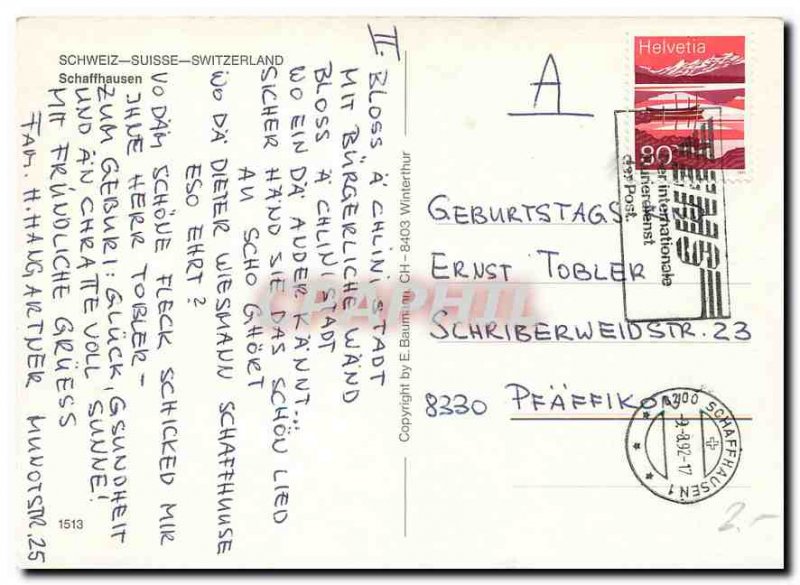 SCHWEIZ—SUISSE—SWITZERLAND
Schaffhausen
II. BLOSS Ä CHLINI STADT
MIT BÜRGERLICHE WÄND
BLOSS Ä CHLINI STADT
WO EIN DÄ ANDER KÄNNT...
SICHER HÄND SIE DAS SCHÖN LIED
AU SCHO GHÖRT
WO DÄ DIETER WIESMANN SCHAFFHUUSE
ESO EHRT?
VO DÄM SCHÖNE FLECK SCHICKED MIR
IHNE HERR TOBLER –
ZUM GEBURI: GLÜCK, GSUNDHEIT
UND ÄN CHRATTE VOLL SUNNE!
MIT FRÜNDLICHE GRÜESS
FAM. H. HANGARTNER MUNOTSTR. 25
1513
Copyright by E. Baumann, CH-8403 Winterthur
CPAPHIL
A
Helvetia
80
EMS
Der internationale
Kurierdienst
der Post.
GEBURTSTAGS
ERNST TOBLER
SCHRIBERWEIDSTR. 23
8330 PFÄFFIKON
8200 SCHAFFHAUSEN 1
-9.-8.92-17
2.-